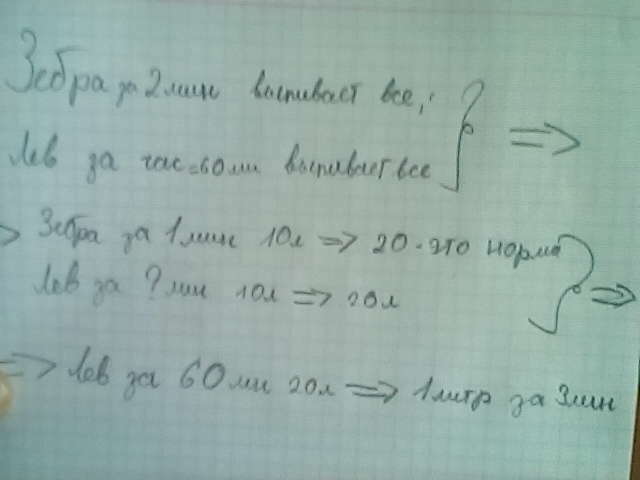 Зебра за 2 мин выпивает все,
Лев за час=60 ми выпивает все } =>
=> Зебра за 1 мин 10л => 20 - это норма
Лев за ? мин 10л => 20л } =>
=> Лев за 60 ми 20л => 1 литр за 3 мин